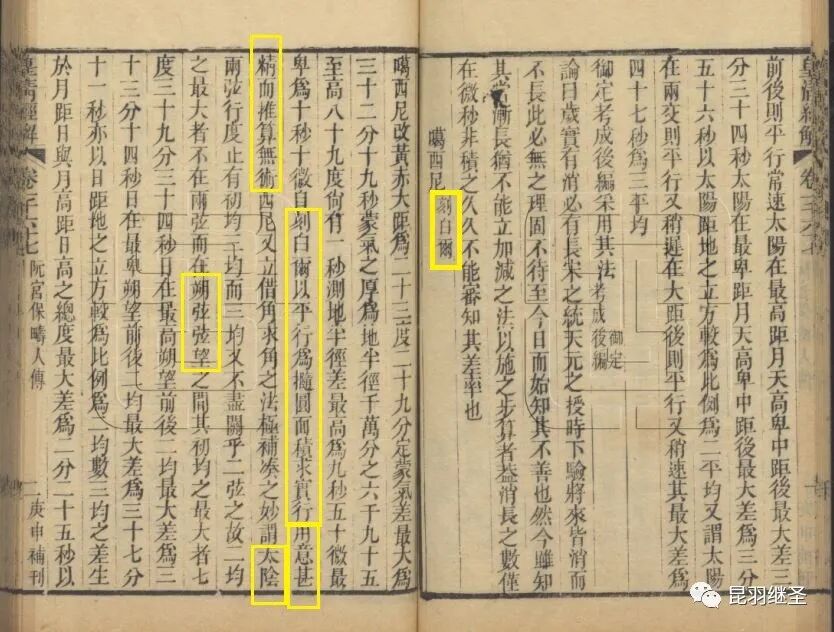 前後則平行常速太陽在最高距月天高卑中距後最大差三
分三十四秒太陽在最卑距月天高卑中距後最大差爲三分
五十六秒以太陽距地之立方較爲比例爲二平均又謂太陽
在兩交則平行又稍遲在大距後則平行又稍速其最大差爲
四十七秒爲三平均
御定考成後編采用其法御定考成後編
論曰歲實有消必有長宋之統天元之授時下驗將來皆消而
不長此必無之理固不待至今日而始知其不善也然今雖知
其當漸長猶不能立加減之法以施之步算者葢消長之數僅
在微秒非積之久久不能審知其差率也
噶西尼 刻白爾
噶西尼改黃赤大距爲二十三度二十九分定蒙氣差最大爲
三十二分十九秒蒙氣之厚爲地半徑千萬分之六千九十五
至高八十九度尙有一秒測地半徑差最高爲九秒五十微最
卑爲十秒十微自刻白爾以平行爲橢圓面積求實行用意甚
精而推算無術西尼又立借角求角之法極補湊之妙謂太陰
兩弦行度止有初均二均而三均又不盡關乎二弦之故二均
之最大者不在兩弦而在朔弦弦望之間其初均之最大者七
度三十九分三十四秒日在最高朔望前後二均最大差爲三
十三分十四秒日在最卑朔望前後二均最大差爲三十七分
十一秒亦以日距地之立方較爲比例爲二均數三均之差生
於月距日與月高距日高之總度最大差爲二分二十五秒以
皇清經解 卷千六七 阮宮保疇人傳 二 庚申補刊
昆羽继圣